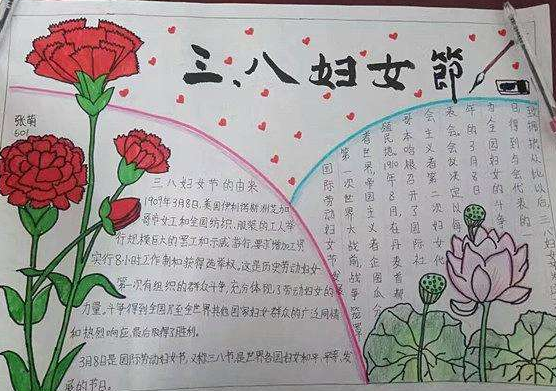 三、八妇女節
张萌
601
三八妇女节的由来
1909年3月8日,美国伊利诺斯洲芝加
哥市女工和全国纺织、服装的工人举
行规模巨大的罢工和示威游行,要求增加工资
实行8小时工作制和获得选举权。这是历史劳动妇女
第一次有组织的群众斗争,充分体现了劳动妇女的
力量,斗争得到全国乃至全世界其他国家妇女群众的广泛同情
和热烈响应,最后取得了胜利。
3月8日是国际劳动妇女节,又称三八节,是世界各国妇女和平、平等、发
展的节日。
国际劳动妇女节发
第一次世界大战前战争笼罩
着世界,帝国主义者企图瓜分
殖民地1910年8月,在丹麦首都
哥本哈根召开了国际社
会主义者第二次妇女代
表会,会议决定以每
年的3月8日
为全国妇女的斗争
日得到与会代表的一
致拥护从此以后三八妇女